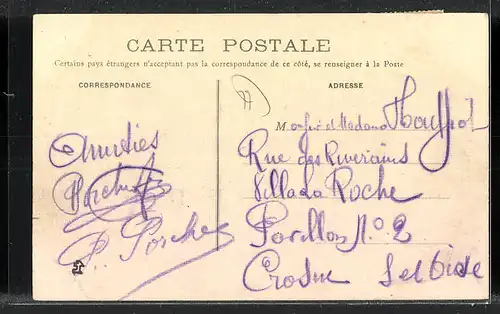 CARTE POSTALE
Certains pays étrangers n'acceptant pas la correspondance de ce côté, se renseigner à la Poste
CORRESPONDANCE
ADRESSE
77
Monsieur et Madame
Amitiés
Rue des Riverains
Villa La Roche
P. Porche
Pavillon N° 2
Crosne Set Oise